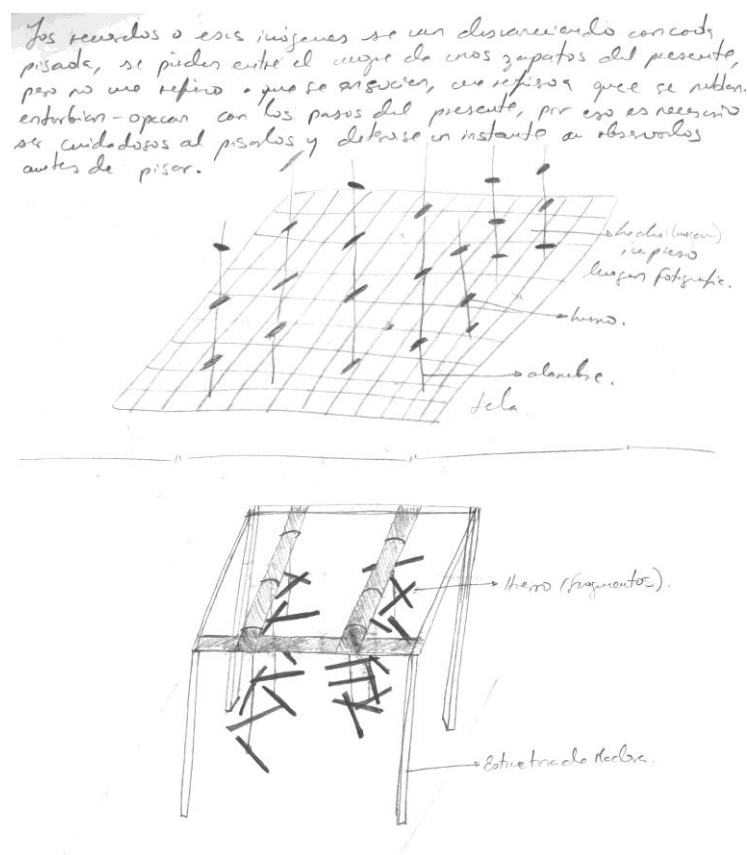 Los recuerdos o esas imágenes se van desvaneciendo con cada
pisada, se pierden entre el mugre de unos zapatos del presente,
pero no me refiero a que se ensucien, me refiero a que se nublan,
enturbian - opacan con los pasos del presente, por eso es necesario
ser cuidadosos al pisarlos y detenerse un instante a observarlos
antes de pisar.
(imagen)
impreso
Imagen fotografic.
hierro.
alambre.
tela
Hierro (fragmentos).
Estructura de Madera.